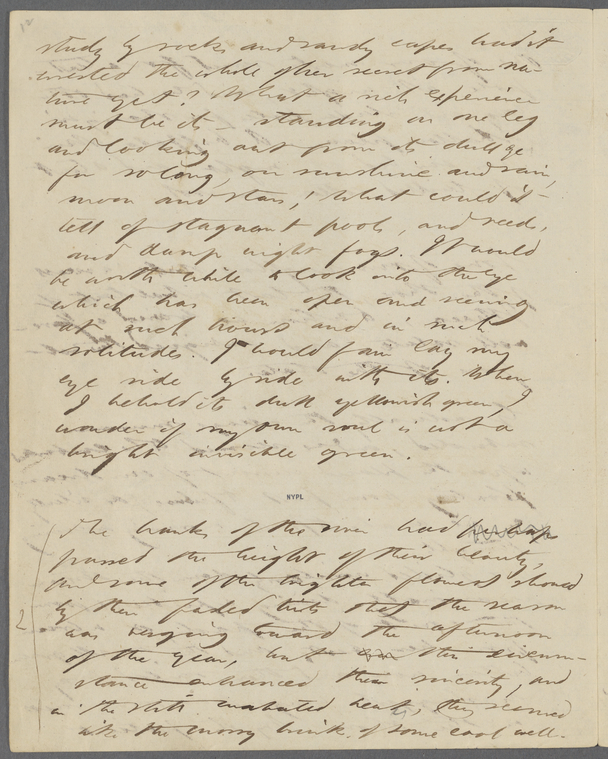 study by rocks and sandy capes had it
wrested the whole of her secret from na-
ture yet? What a rich experience
must be its – standing on one leg
and looking out from its dull eye
for so long, on sunshine and rain,
moon and stars! What could it
tell of stagnant pools, and reeds,
and damp night fogs. It would
be worth while to look into the eye
which has been open and seeing
at such hours and in such
solitudes. I would fain lay my
eye side by side with its. When
I behold its dull yellowish green,
wonder if my own soul is not a
bright invisible green.
NYPL
The banks of the river had
passed the height of their beauty,
and some of the brighter flowers showed
by their faded tints that the season
was verging toward the afternoon
of the year, but this circum-
stance enhanced their sincerity, and
in the still unabated heats, they seemed
like the mossy brink of some cool well.
2